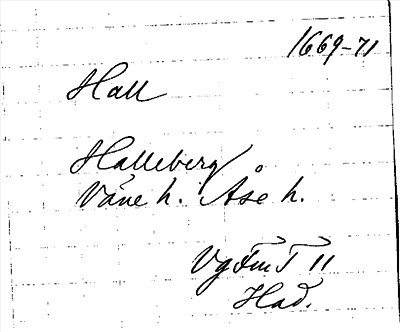 1669-71
Hall
Halleberg
Våne h. Åse h.
Vg Fm T 11
Had.